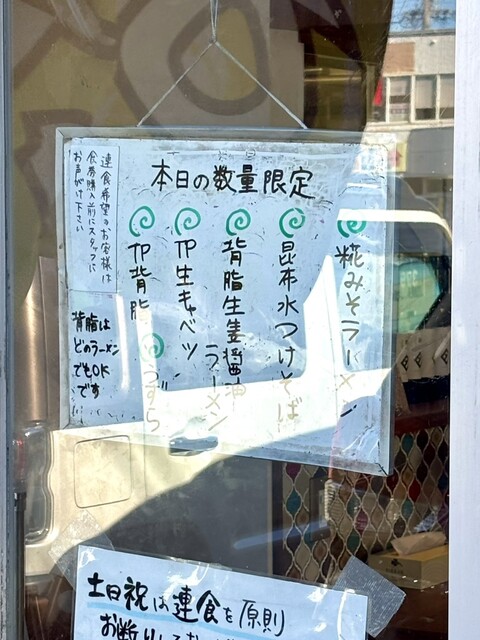 本日の数量限定
糀みそラーメン
昆布水つけそば
背脂生姜醤油
ラーメン
TP生キャベツ
TP背脂
うずら
連食希望のお客様は
食券購入前にスタッフに
お声がけ下さい
背脂は
どのラーメン
でもOK
です
土日祝は連食を原則
お断りしてお